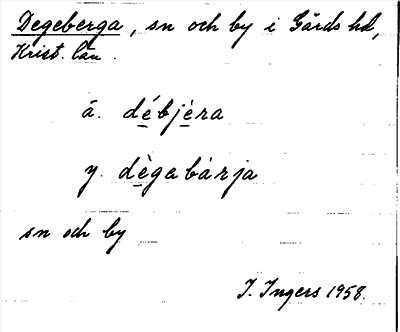 Degeberga, sn och by i Gärds hd,
Krist. län.
ä. débjèra
y. dègabárja
sn och by
I. Ingers 1958.